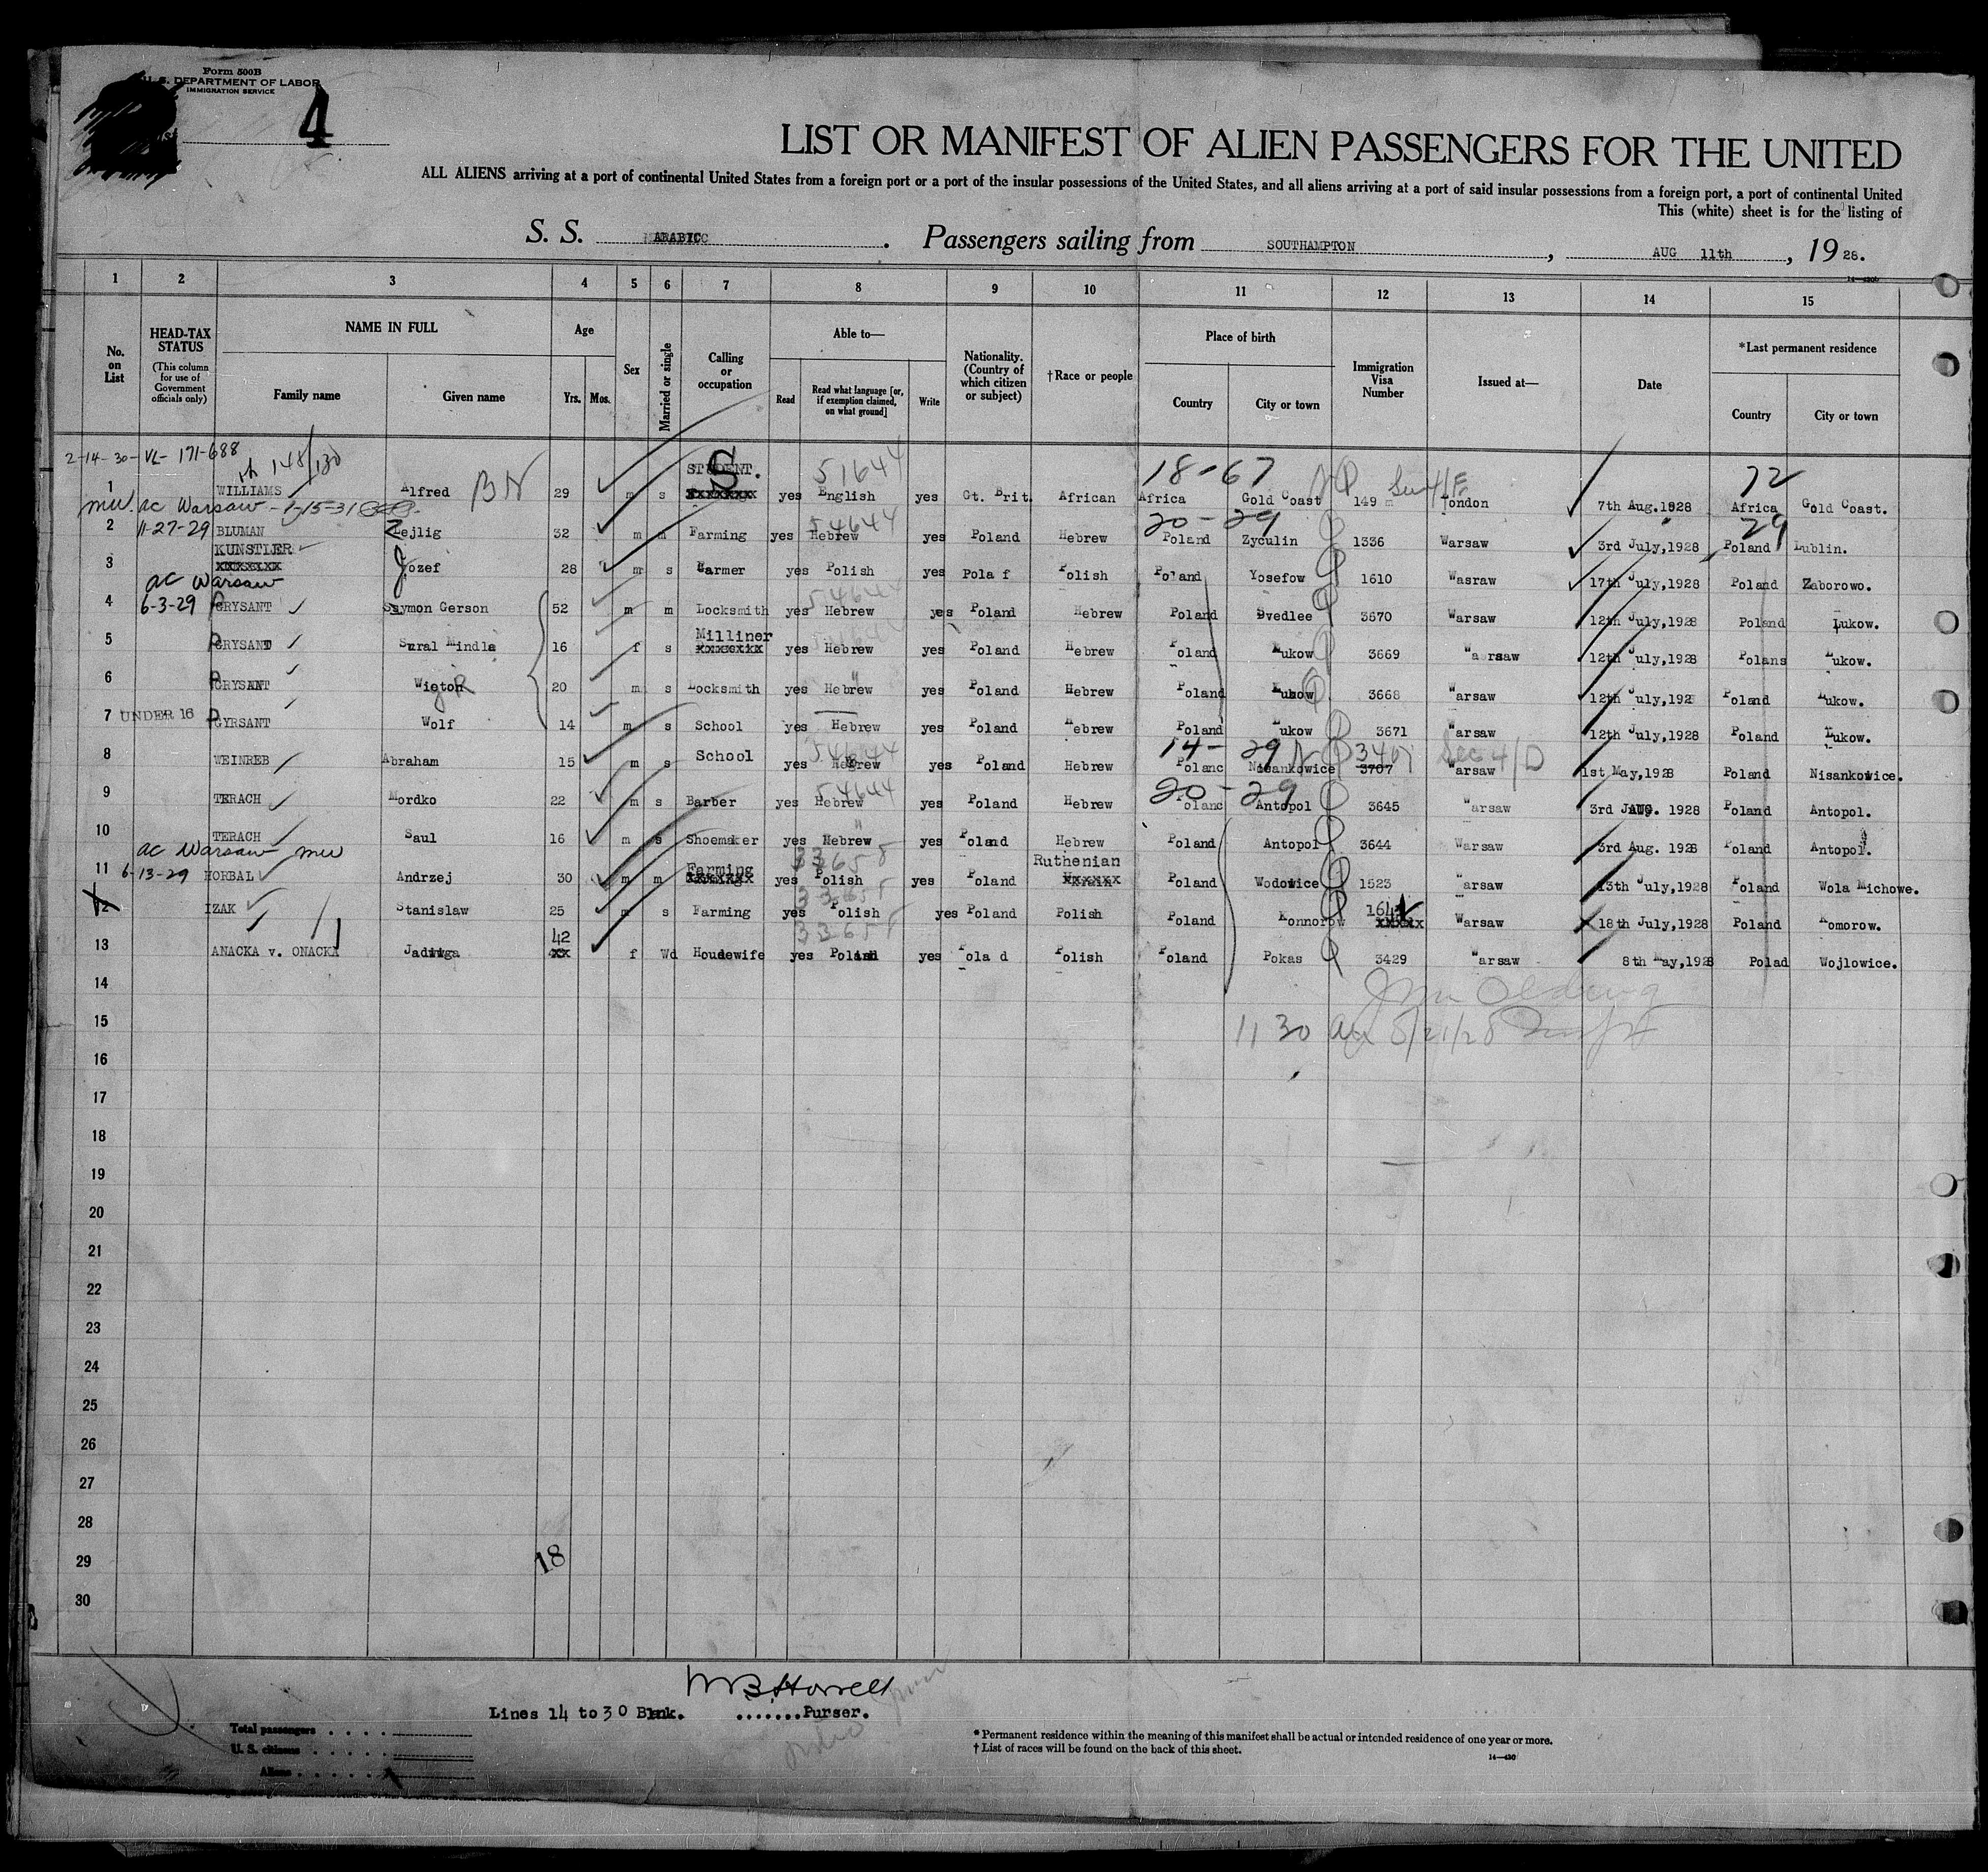 Form 500B
U. S. DEPARTMENT OF LABOR
IMMIGRATION SERVICE
4
LIST OR MANIFEST OF ALIEN PASSENGERS FOR THE UNITED
ALL ALIENS arriving at a port of continental United States from a foreign port or a port of the insular possessions of the United States, and all aliens arriving at a port of said insular possessions from a foreign port, a port of continental United
This (white) sheet is for the listing of
S. S. ARABIC . Passengers sailing from SOUTHAMPTON , AUG 11th , 19 28.
1 2 3 4 5 6 7 8 9 10 11 12 13 14 15
No. on List
HEAD-TAX STATUS (This column for use of Government officials only)
NAME IN FULL Family name Given name
Age Yrs. Mos.
Sex
Married or single
Calling or occupation
Able to— Read Read what language [or, if exemption claimed, on what ground] Write
Nationality. (Country of which citizen or subject)
†Race or people
Place of birth Country City or town
Immigration Visa Number
Issued at—
Date
*Last permanent residence Country City or town
2-14-30- VL- 171-688
148/130
STUDENT S. 51644 18-67 72
1 WILLIAMS Alfred BN 29 m s xxxxxxx yes English yes Gt. Brit. African Africa Gold Coast 149 London 7th Aug.1928 Africa Gold Coast.
mw. ac Warsaw - 1-15-31
54644 20-29 29
2 11-27-29 BLUMAN Zejlig 32 m m Farming yes Hebrew yes Poland Hebrew Poland Zyculin 1336 Warsaw 3rd July,1928 Poland Lublin.
KUNSTLER
3 xxxxxxx Jozef 28 m s Garmer yes Polish yes Pola f Polish Poland Yosefow 1610 Wasraw 17th July,1928 Poland Zaborowo.
ac Warsaw 54644
4 6-3-29 PRYSANT Szymon Gerson 52 m m Locksmith yes Hebrew yes Poland Hebrew Poland 3670 Warsaw 12th July,1928 Poland Lukow.
Milliner
5 PRYSANT Sural Mindla 16 f s xxxxxxx yes Hebrew yes Poland Hebrew Poland Lukow 3669 Wa rsaw 12th July,1928 Polans Lukow.
6 PRYSANT 20 m s Locksmith yes Hebrew yes Poland Hebrew Poland Lukow 3668 Warsaw 12th July,192 Poland Lukow.
7 UNDER 16 PYRSANT Wolf 14 m s School yes Hebrew yes Poland Hebrew Poland Lukow 3671 Warsaw 12th July,1928 Poland Lukow.
54644 14- 29 Sec 4/D
8 WEINREB Abraham 15 m s School yes Hebrew yes Poland Hebrew Polanc Nisankowice 3707 Warsaw 1st May,1928 Poland Nisankowice.
54644 20-29
9 TERACH Mordko 22 m s Barber yes Hebrew yes Poland Hebrew Polanc Antopol 3645 Warsaw 3rd AUG. 1928 Poland Antopol.
10 TERACH Saul 16 m s Shoemaker yes Hebrew yes Poland Hebrew Poland Antopol 3644 Warsaw 3rd Aug. 1928 Poland Antopol.
ac Warsaw mw Farming 33658 Ruthenian
11 6-13-29 HORBAL Andrzej 30 m m xxxxxxx yes Polish yes Poland xxxxxx Poland Wodowice 1523 Warsaw 13th July,1928 Poland Wola Michowe.
33658 1641
12 IZAK Stanislaw 25 m s Farming yes Polish yes Poland Polish Poland Konnorow xxxxx Warsaw 18th July,1928 Poland Komorow.
42 33658
13 ANACKA v. ONACKA Jadwiga xx f Wd Housewife yes Polish yes Pola d Polish Poland Pokas 3429 Warsaw 8th May,1928 Polad Wojlowice.
14
15 11 30 8/21/28
16
17
18
19
20
21
22
23
24
25
26
27
28
29 18
30
Lines 14 to 30 Blank. .......Purser.
Total passengers
U. S. citizens
Aliens
* Permanent residence within the meaning of this manifest shall be actual or intended residence of one year or more.
† List of races will be found on the back of this sheet.
14—430